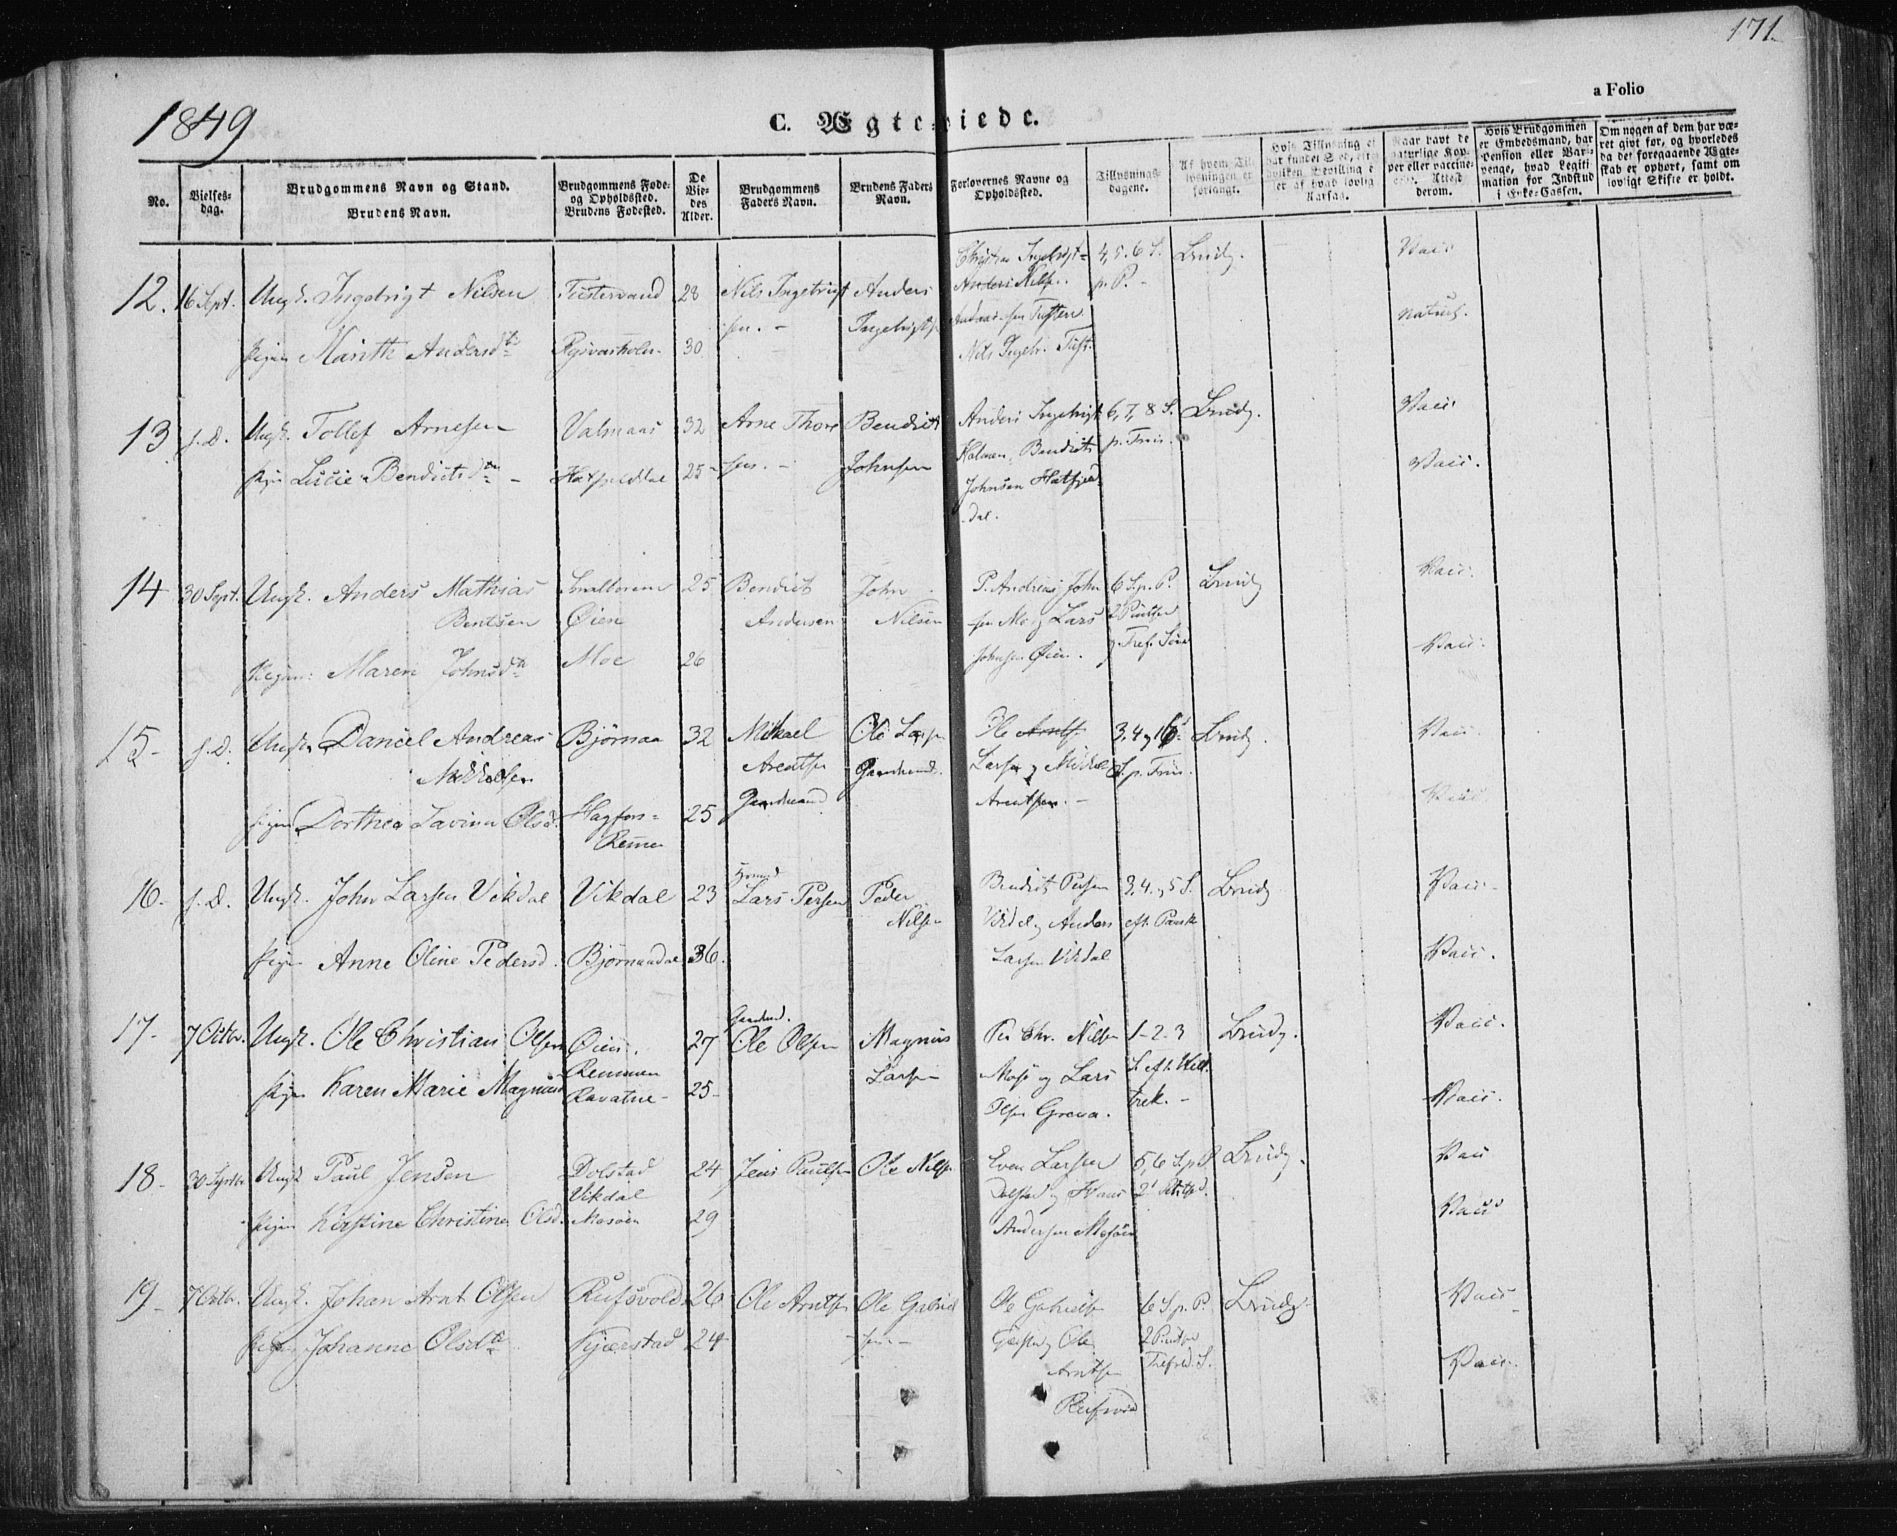 171
a Folio
1849
C. Ægteviede.
No.
Vielses-
dag.
Brudgommens Navn og Stand.
Brudens Navn.
Brudgommens Føde-
og Opholdssted.
Brudens Fødested.
De
Vie-
des
Alder.
Brudgommens
Faders Navn.
Brudens Faders
Navn.
Forlovernes Navne og
Opholdssted.
Tillysnings-
dagene.
Af hvem Til-
lysningen er
forlangt.
Hvis Tillysning ei
har fundet Sted, etter
hvilken Bevilling e
er af hvad lovlig
Aarsag.
Naar havt de
naturlige Kop-
per eller vaccine-
rede. Attest
derom.
Hvis Brudgommen
er Embedsmand, har
Pension eller Var-
penge, hvad Legiti-
mation for Indskud
i Enke-Cassen.
Om nogen af dem har væ-
ret givt før, og hvorledes
da det foregaaende Ægte-
skab er ophørt, samt om
lovligt Skifte er holdt.
12. 16 Sept. Ungk. Ingebrigt Nilsen Tustervand 28 Nils Ingebrigt Anders 4, 5. 6 S. Brudg. Vacc.
sen. - Ingebrigts Anders Nilsen p. P. - naturl.
Pigen Marith Andersdtr 30 Nils Ingebr. Tust.
13 s. D. Ungk. Tollef Arnesen Valmaas 32 Arne Thore Bendict Anders Ingebrigt 6, 7, 8 S. Brudg. Vacc.
Holmen, Bendict p. Trin.
Pigen Lucie Bendictsdtr - Hatfjelddal 25 - sen. - Johnsen Johnsen Hatfjel Vacc.
dal.
14 30 Sept. Ungk. Anders Mathias 25 Bendict John P. Andreas John 6 S. p. P. Brudg Vacc.
Bentsen Øien Andersen Nilsen sen Mo og Lars
Pigen: Maren Johnsdtr Moe 26 Johnsen Øien. Vacc.
15 - s. D. Ungk. Daniel Andreas Bjørnaa 32 Mikael Ole Larsen Ole Arntsen 3, 4 og 16 Brudg. Vacc.
Mikkelsen Arentsen Gaardmand. Larsen og Mikkel S. p. Trin.
Gaardmand Arentsen. -
Pigen Dorthea Lavina Olsd. Hagfors- 25 Vacc.
Remen
16. s. D. Ungk. John Larsen Vikdal Vikdal 23 Lars Persen Peder Bendict Persen 3, 4. og 5 S. Brudg Vacc.
Nilsen Vikdal og Anders eft. Paask
Pigen Anne Oline Pedersd. Bjørnaadal 36. Larsen Vikdal Vacc.
17 - 7 Octbr. Ungk. Ole Christian Olsen Øien. 27 Gaardmd. Ole Olsen Magnus Per Chr. Nilsen 1 - 2 - 3 Brudg. Vacc.
Remmen Larsen Mosø og Lars S. eft. Hell.
Pigen Karen Marie Magnusd Ravatne - 25 - Olsen Greva. trek. - Vacc.
18 - 30 Septbr. Ungk Paul Jensen Dolstad 24 Jens Paulsen Ole Nilsen Even Larsen 5, 6 S. p. P Brudg. Vacc
Vikdal Dolstad og Hans
Pigen Kirstine Christine Olsd. Mosøen 29 Andersen Mosøen Vacc
19 - 7 Octbr. Ungk. Johan Arnt Olsen Rufsvold 26 Ole Arntsen Ole Gabriel Ole Gabrielsen 6 S. p. P. Brudg. Vacc
Pigen Johanne Olsdtr Kjærstad 24 - sen - og Ole 2 Pintse
Arntsen Trefold. S. Vacc.
Rufsvold